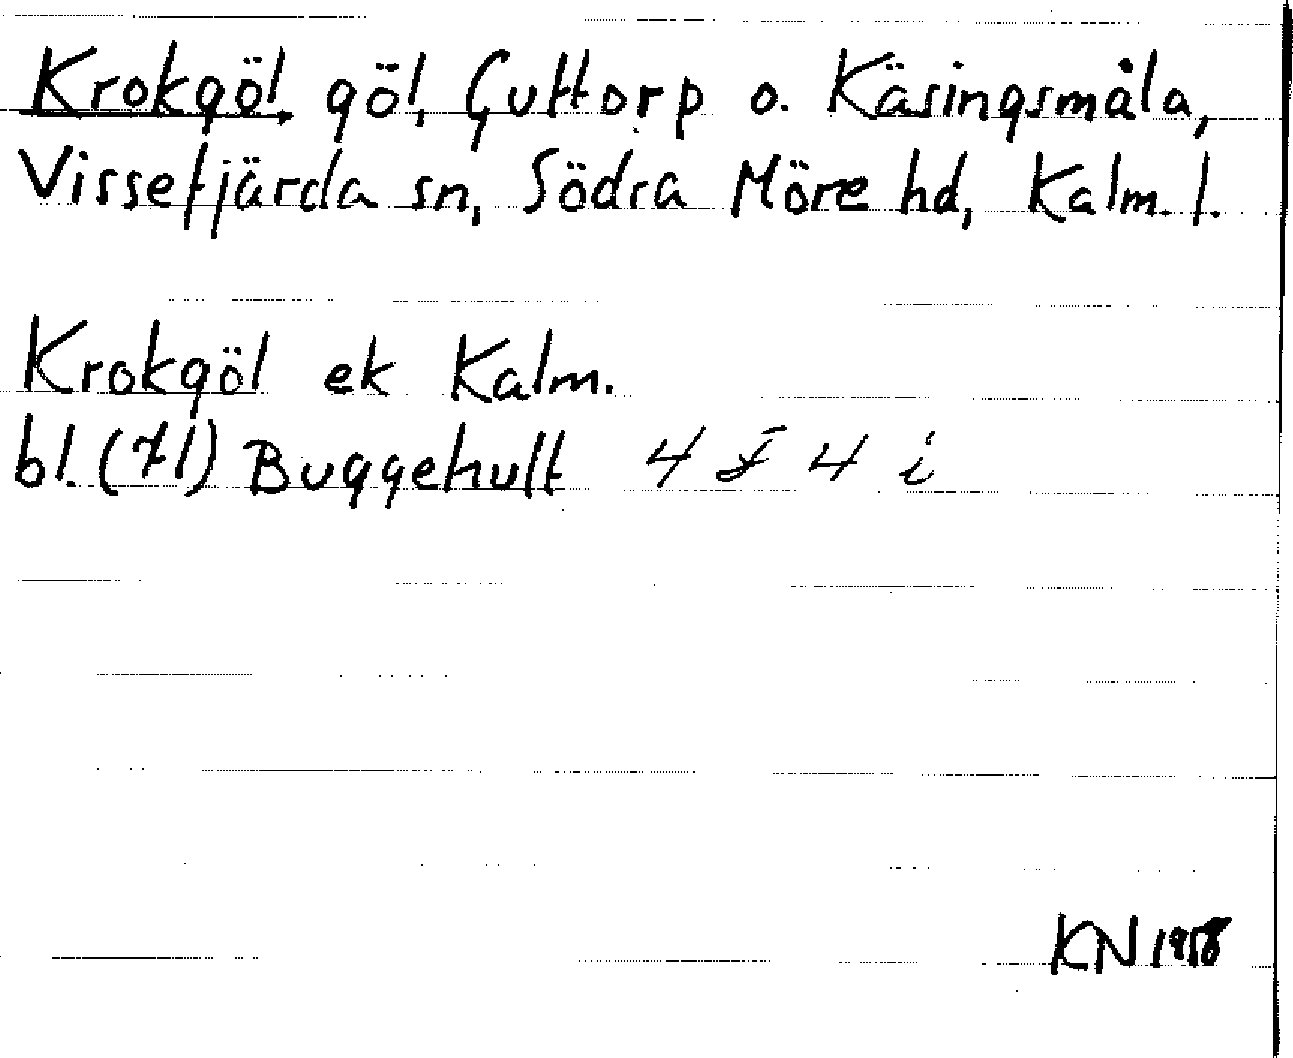 Krokgöl, göl, Guttorp o. Käsingsmåla,
Vissefjärda sn, Södra Möre hd, Kalm. l.
Krokgöl ek Kalm.
bl. (71) Buggehult 4 F 4 i
KN 1958